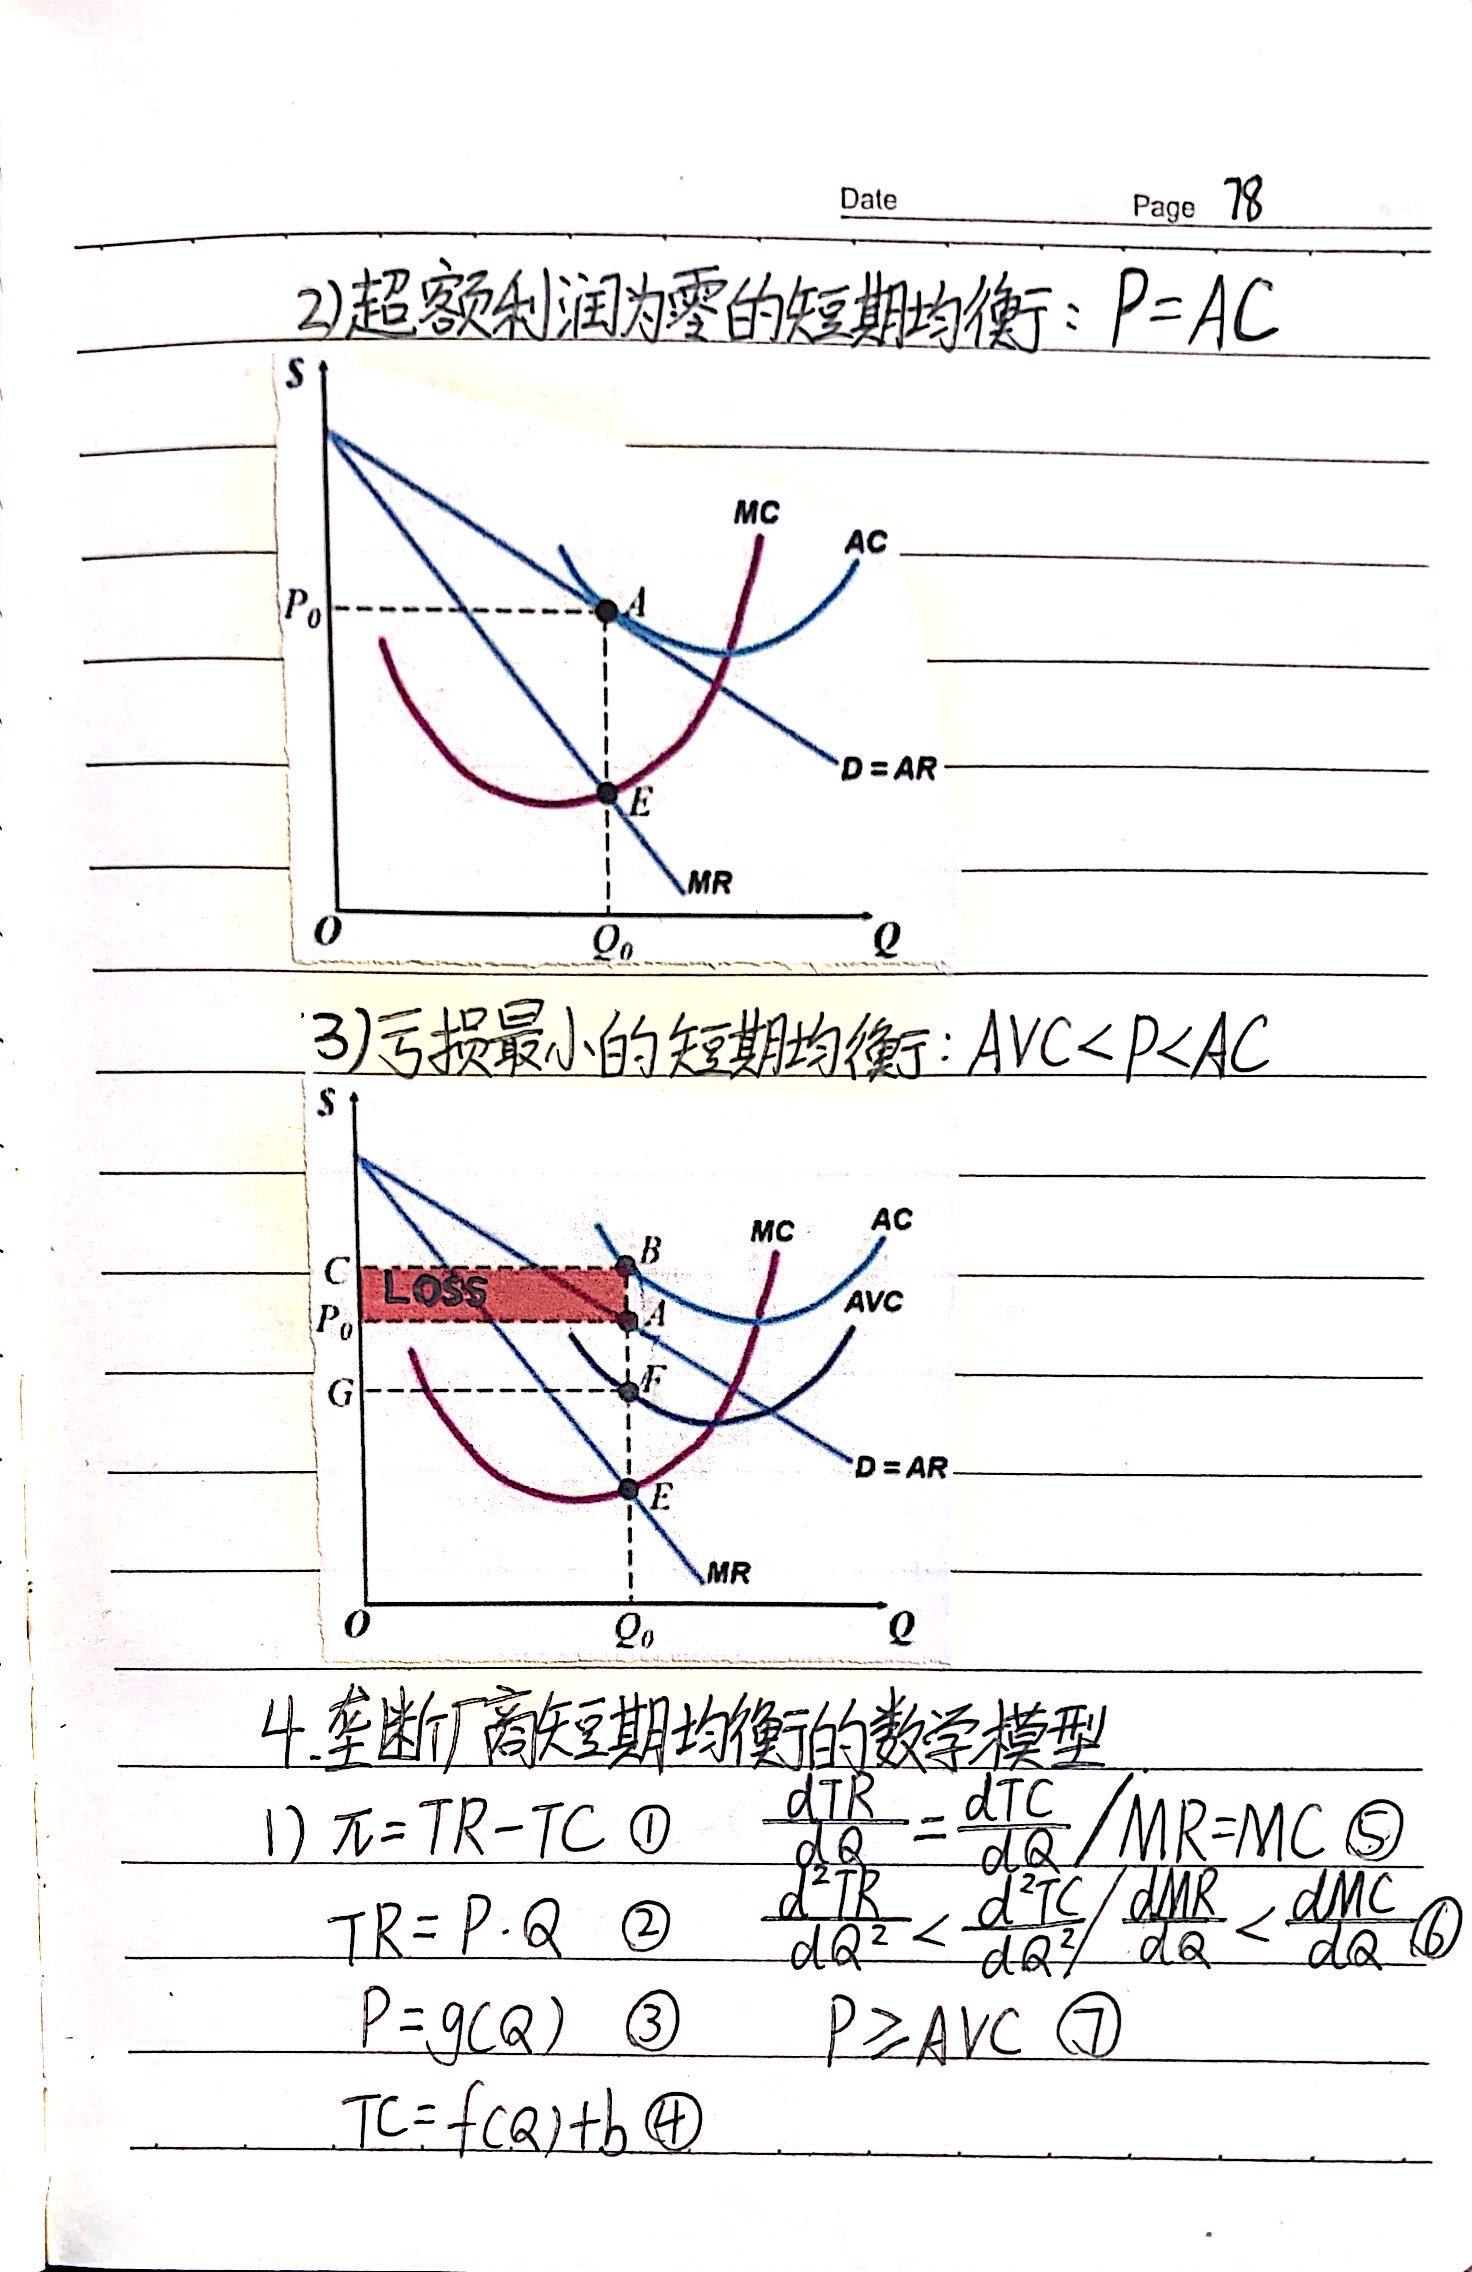 Date Page 78
2)超额利润为零的短期均衡: P=AC
S
MC
AC
P₀
A
D=AR
E
MR
O Q₀ Q
3)亏损最小的短期均衡: AVC<P<AC
S
MC AC
C B
LOSS
P₀ A AVC
G F
D=AR
E
MR
O Q₀ Q
4.垄断厂商短期均衡的数学模型
1) π=TR-TC ① dTR/dQ = dTC/dQ / MR=MC ⑤
TR=P·Q ② d²TR/dQ² < d²TC/dQ² / dMR/dQ < dMC/dQ ⑥
P=g(Q) ③ P≥AVC ⑦
TC=f(Q)+b ④